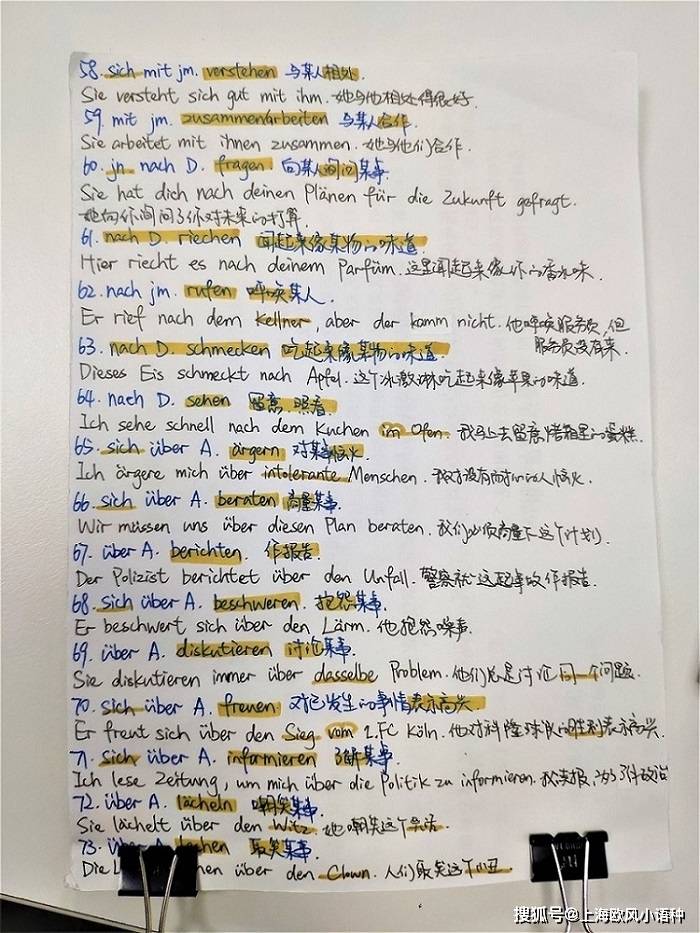 58. sich mit jm. verstehen 与某人相处.
Sie versteht sich gut mit ihm. 她与他相处得很好.
59. mit jm. zusammenarbeiten 与某人合作.
Sie arbeitet mit ihnen zusammen. 她与他们合作.
60. jn. nach D. fragen 向某人询问某事.
Sie hat dich nach deinen Plänen für die Zukunft gefragt.
她向你询问了你对未来的打算.
61. nach D. riechen 闻起来像某物的味道.
Hier riecht es nach deinem Parfüm. 这里闻起来像你的香水味.
62. nach jm. rufen 呼唤某人.
Er rief nach dem Kellner, aber der komm nicht. 他呼唤服务员,但
服务员没有来.
63. nach D. schmecken 吃起来像某物的味道.
Dieses Eis schmeckt nach Apfel. 这个冰激淋吃起来像苹果的味道.
64. nach D. sehen 留意, 照看.
Ich sehe schnell nach dem Kuchen im Ofen. 我马上去留意烤箱里的蛋糕.
65. sich über A. ärgern 对某事恼火
Ich ärgere mich über intolerante Menschen. 我对没有耐心的人恼火.
66. sich über A. beraten 商量某事.
Wir müssen uns über diesen Plan beraten. 我们必须商量下这个计划.
67. über A. berichten. 作报告
Der Polizist berichtet über den Unfall. 警察就这起事故作报告.
68. sich über A. beschweren. 抱怨某事.
Er beschwert sich über den Lärm. 他抱怨噪声.
69. über A. diskutieren 讨论某事.
Sie diskutieren immer über dasselbe Problem. 他们总是讨论同一个问题.
70. sich über A. freuen 对已发生的事情表示高兴.
Er freut sich über den Sieg vom 1.FC Köln. 他对科隆球队的胜利表示高兴.
71. sich über A. informieren 了解某事.
Ich lese Zeitung, um mich über die Politik zu informieren. 我读报, 为了了解政治
72. über A. lächeln 嘲笑某事.
Sie lächelt über den Witz. 她嘲笑这个笑话.
73. über A. lachen 取笑某事.
Die über den Clown. 人们取笑这个小丑.
搜狐号@上海欧风小语种